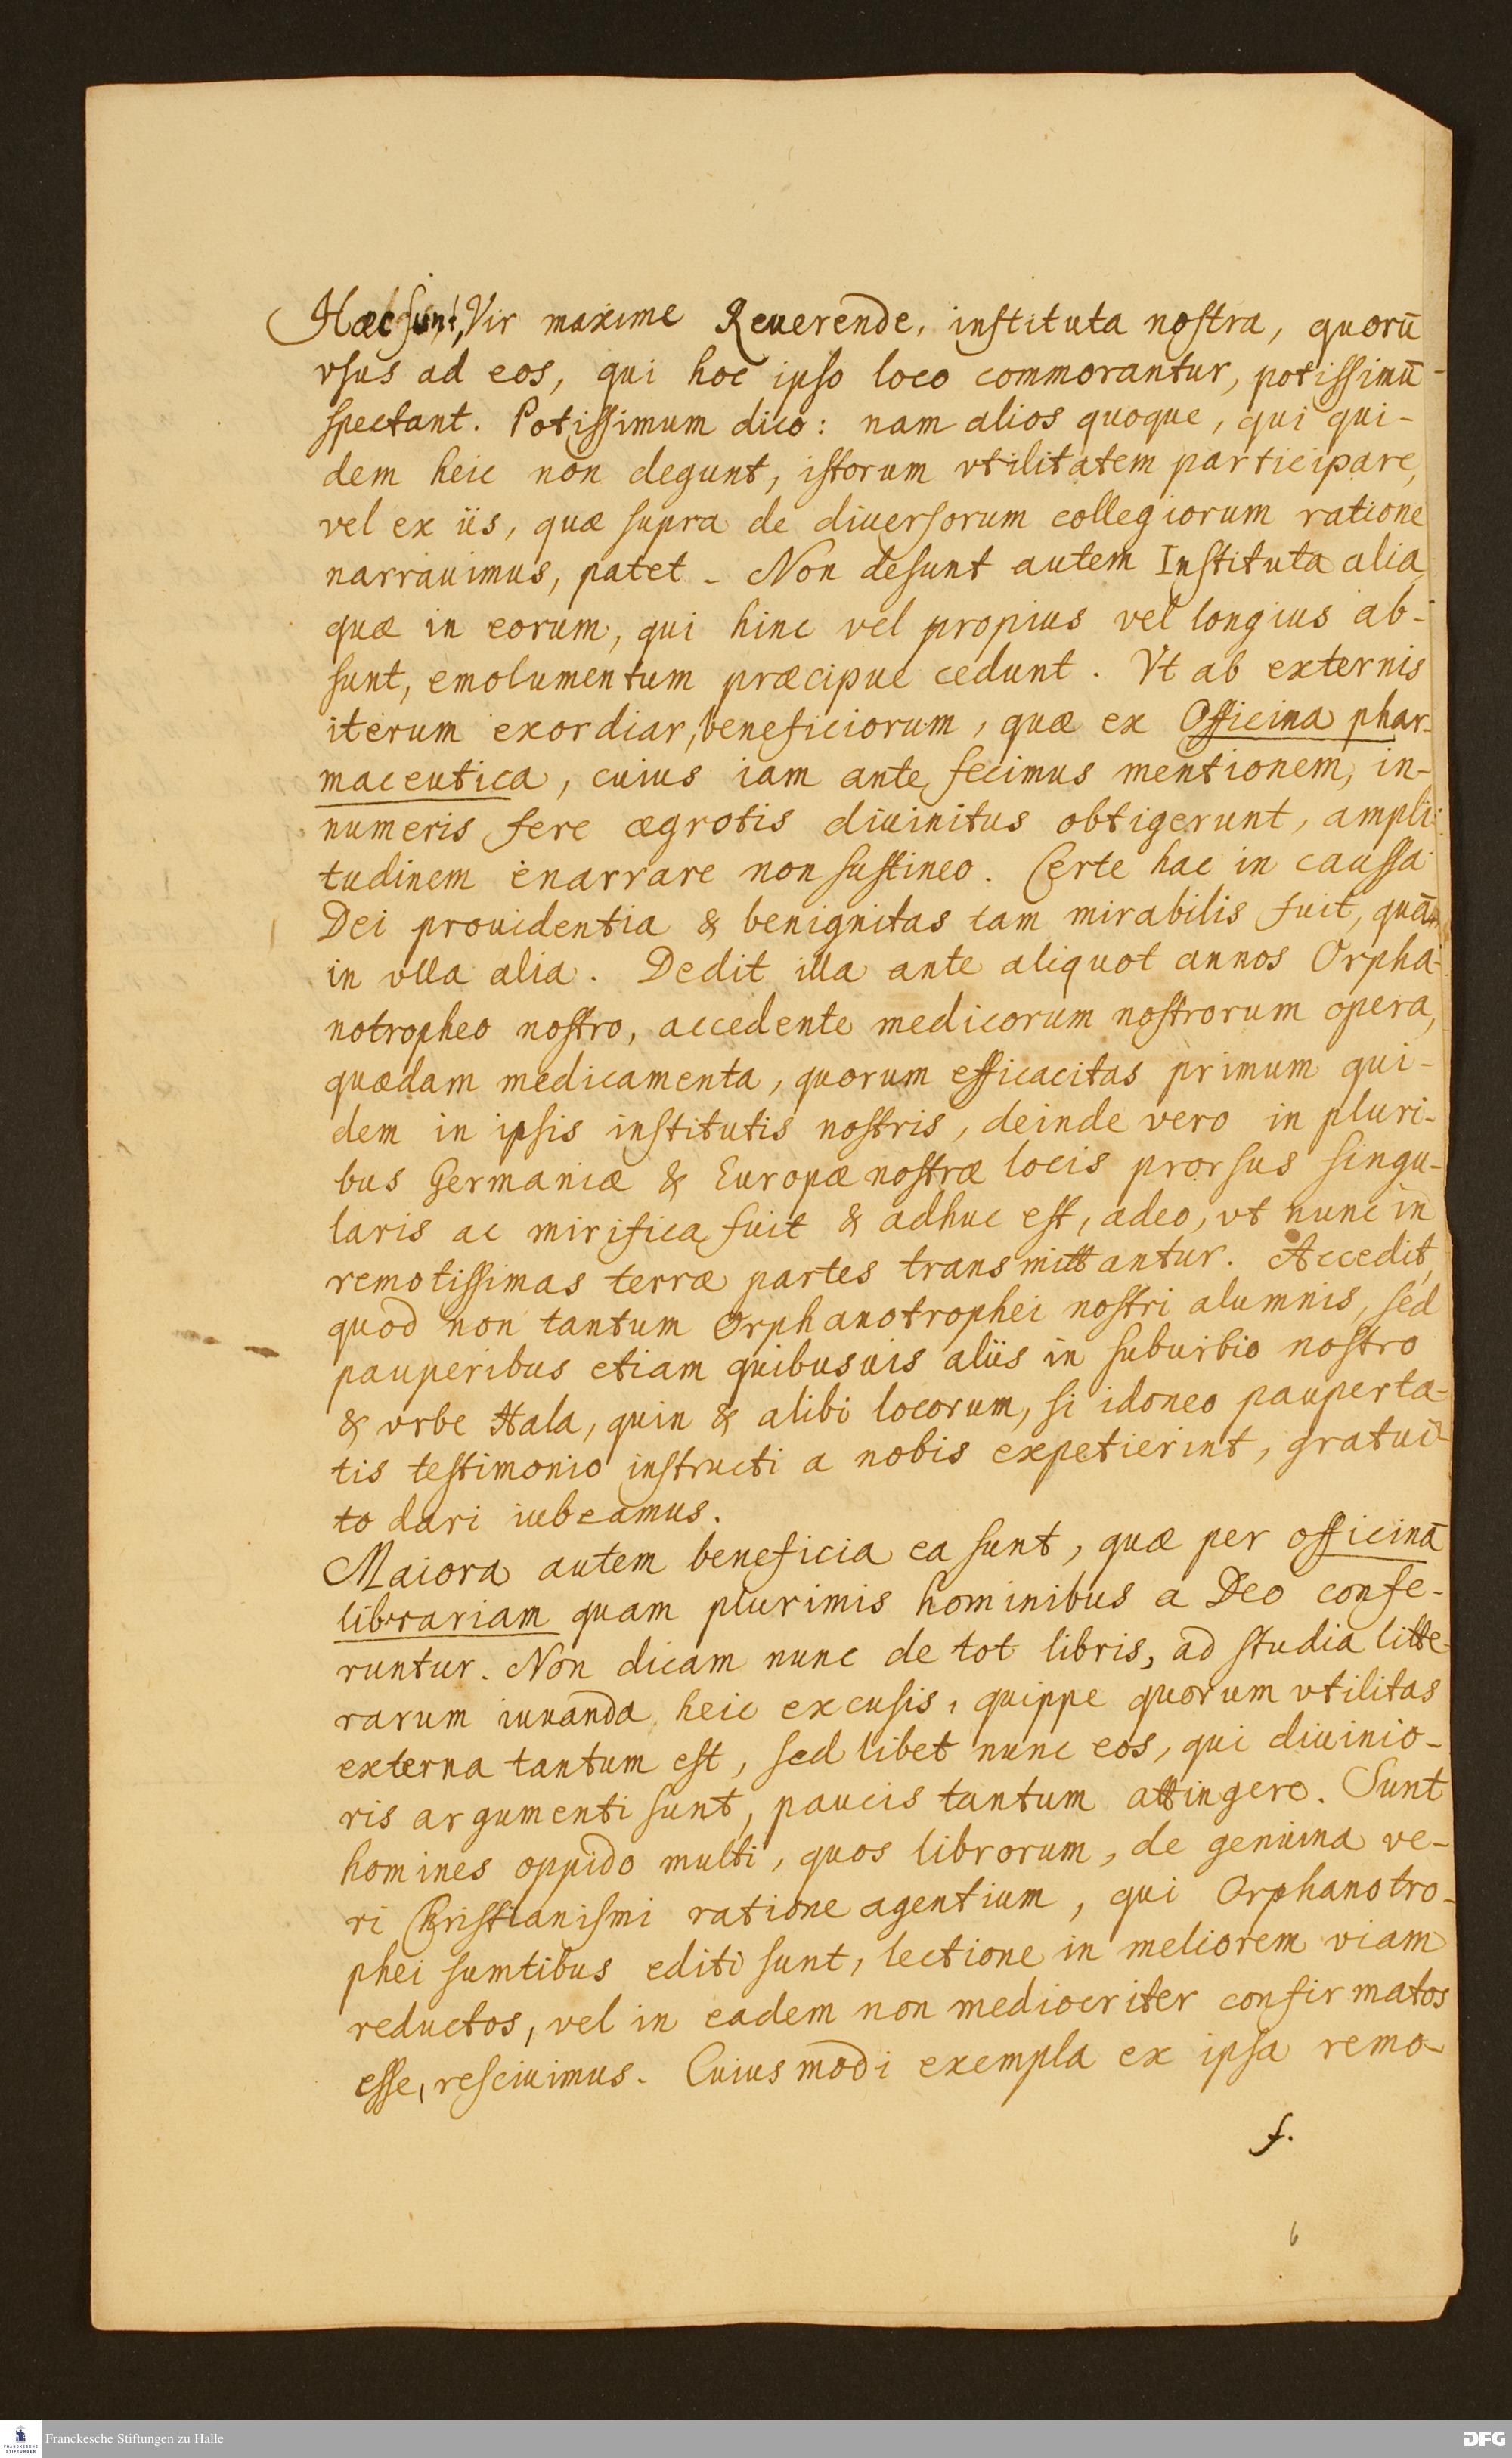 Hæc sunt, Vir maxime Reuerende, instituta nostra, quorū
vsus ad eos, qui hoc ipso loco commorantur, potissimū
spectant. Potissimum dico: nam alios quoque, qui qui-
dem heic non degunt, istorum vtilitatem participare,
vel ex iis, quæ supra de diuersorum collegiorum ratione
narrauimus, patet. Non desunt autem Instituta alia
quæ in eorum, qui hinc vel propius vel longius ab-
sunt, emolumentum præcipue cedunt. Vt ab externis
iterum exordiar, beneficiorum, quæ ex Officina phar-
maceutica, cuius iam ante fecimus mentionem, in-
numeris fere ægrotis diuinitus obtigerunt, ampli-
tudinem enarrare non sustineo. Certe hac in caussa
Dei prouidentia & benignitas tam mirabilis fuit, quam
in vlla alia. Dedit illa ante aliquot annos Orpha-
notropheo nostro, accedente medicorum nostrorum opera,
quædam medicamenta, quorum efficacitas primum qui-
dem in ipsis institutis nostris, deinde vero in pluri-
bus Germaniæ & Europæ nostræ locis prorsus singu-
laris ac mirifica fuit & adhuc est, adeo, vt nunc in
remotissimas terræ partes transmittantur. Accedit,
quod non tantum Orphanotrophei nostri alumnis, sed
pauperibus etiam quibusuis aliis in suburbio nostro
& vrbe Hala, quin & alibi locorum, si idoneo pauperta-
tis testimonio instructi a nobis expetierint, gratui-
to dari iubeamus.
Maiora autem beneficia ea sunt, quæ per officinā
librariam quam plurimis hominibus a Deo confe-
runtur. Non dicam nunc de tot libris, ad studia litte-
rarum iuuanda heic excusis, quippe quorum vtilitas
externa tantum est, sed libet nunc eos, qui diuinio-
ris argumenti sunt, paucis tantum attingere. Sunt
homines oppido multi, quos librorum, de genuina ve-
ri Christianismi ratione agentium, qui Orphanotro-
phei sumtibus editi sunt, lectione in meliorem viam
reductos, vel in eadem non mediocriter confirmatos
esse, resciuimus. Cuiusmodi exempla ex ipsa remo-
f.
6
Franckesche Stiftungen zu Halle
DFG